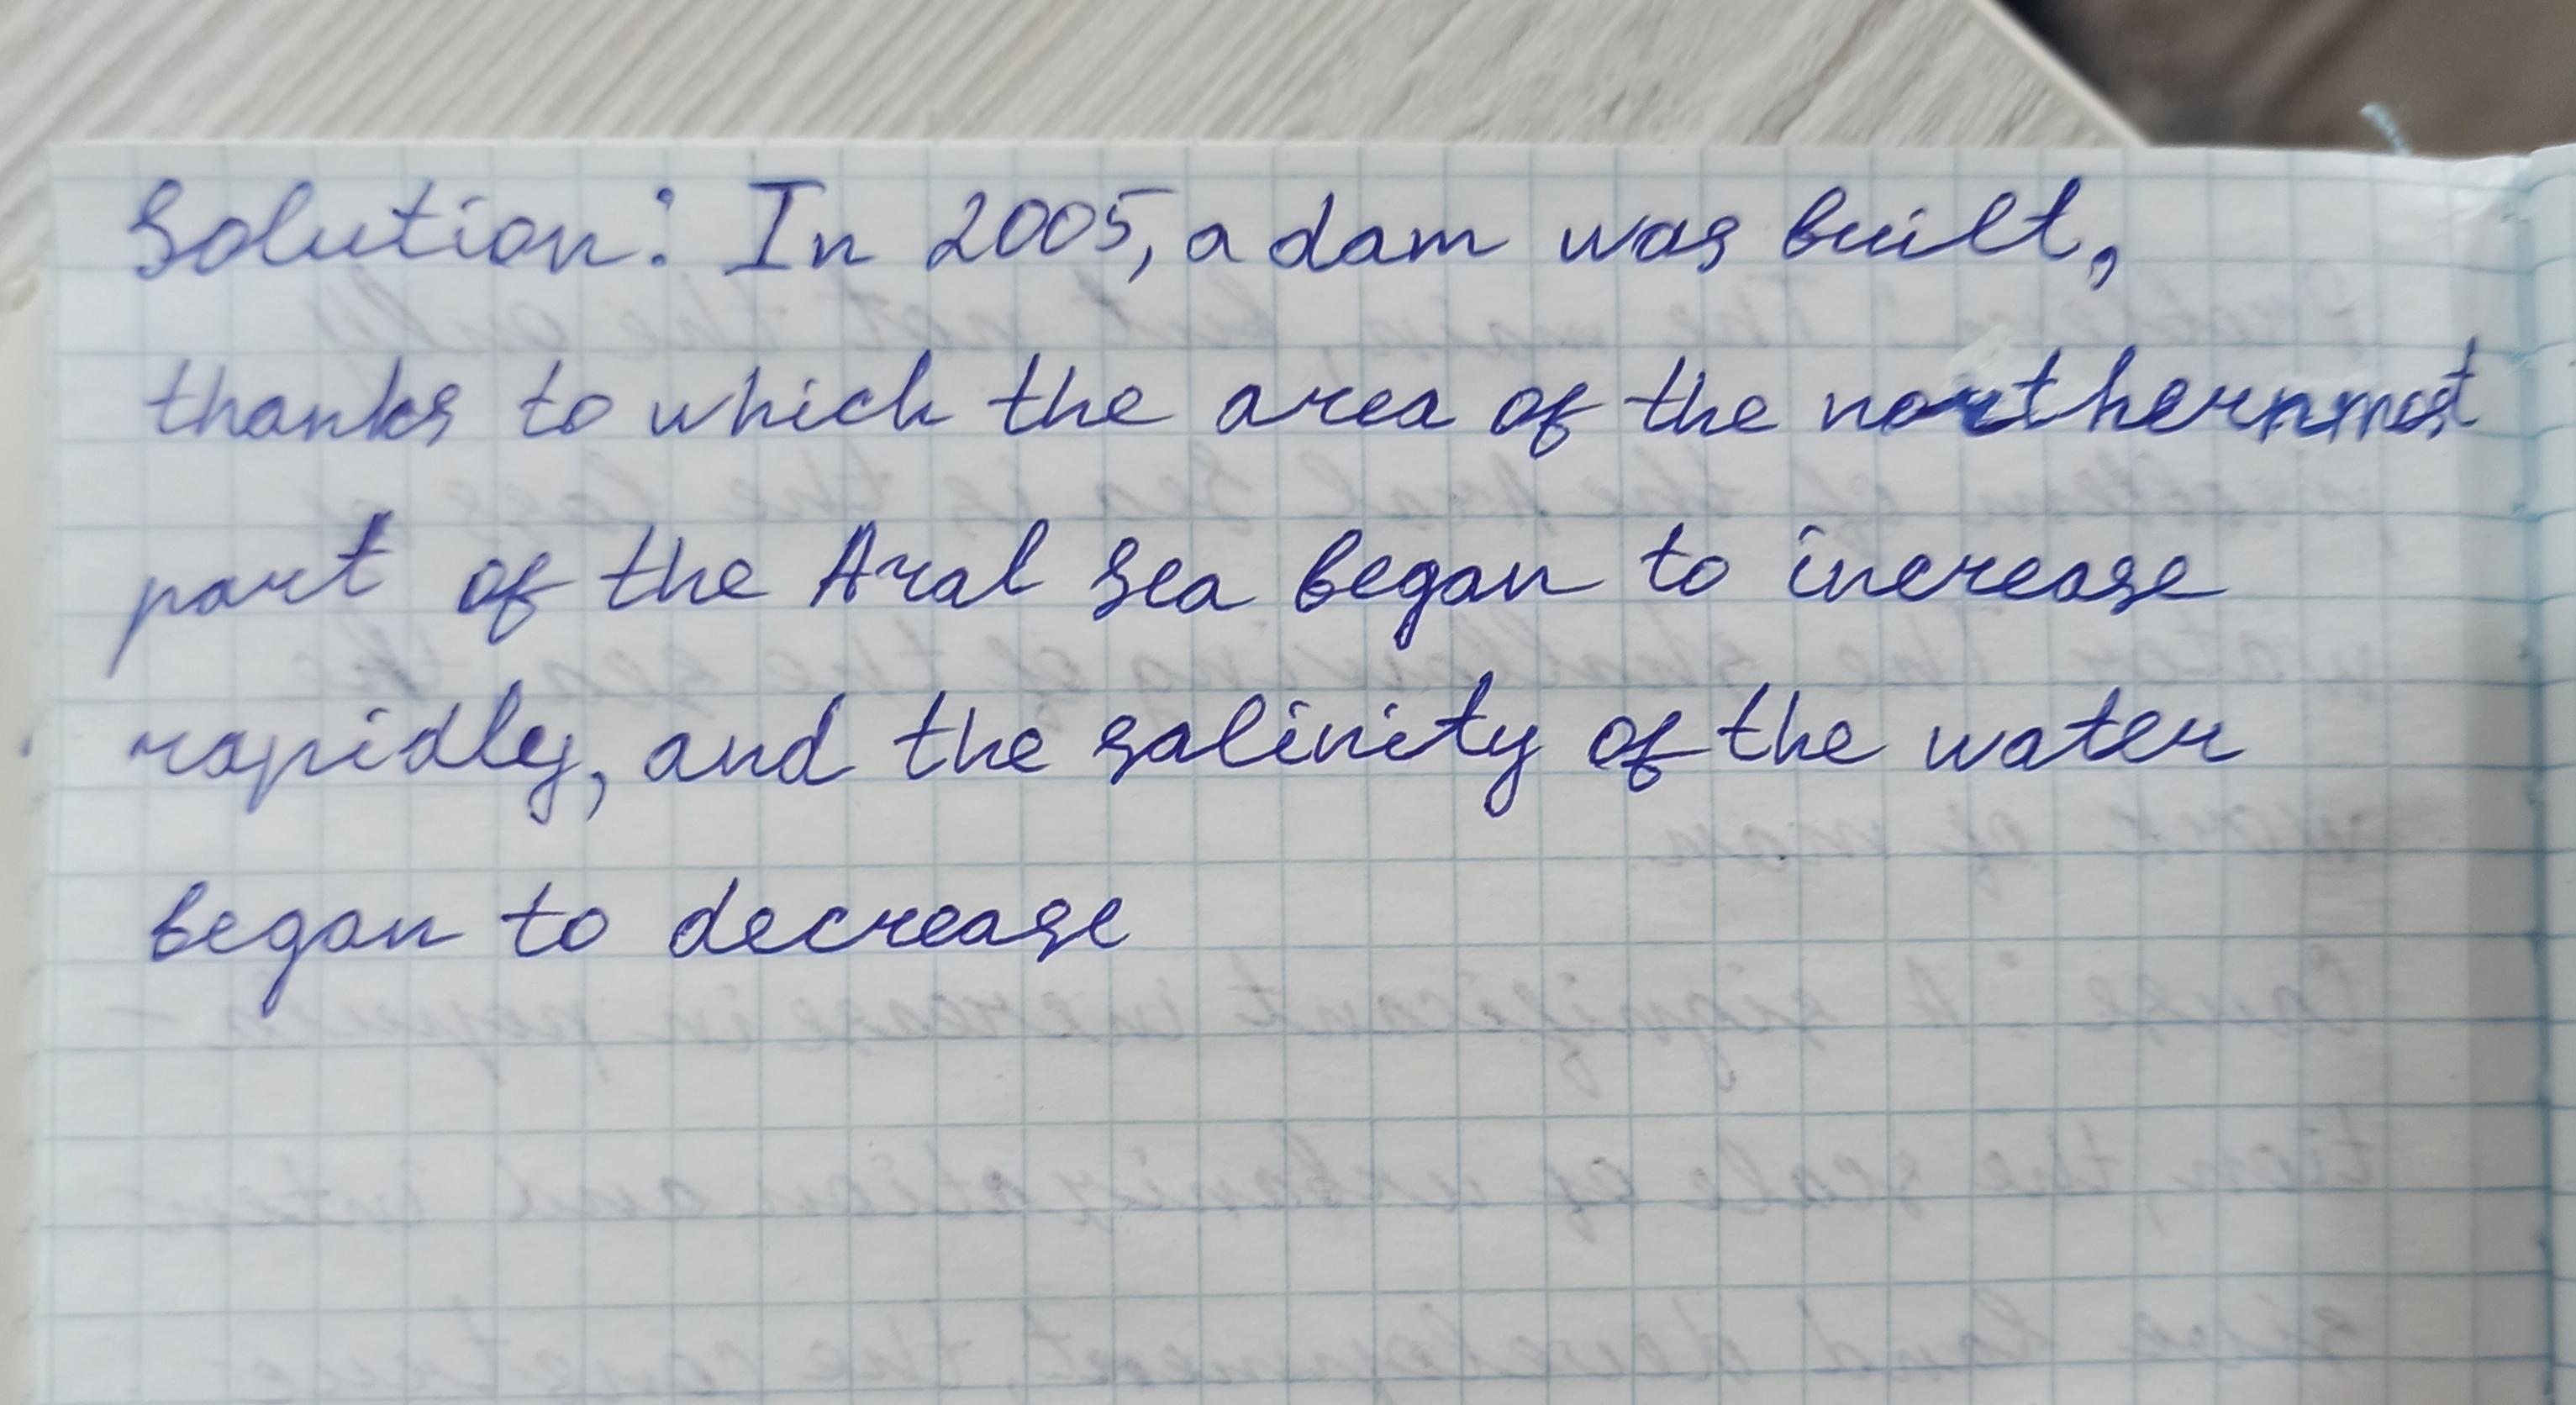 Solution: In 2005, a dam was built,
thanks to which the area of the northernmost
part of the Aral Sea began to increase
rapidly, and the salinity of the water
began to decrease